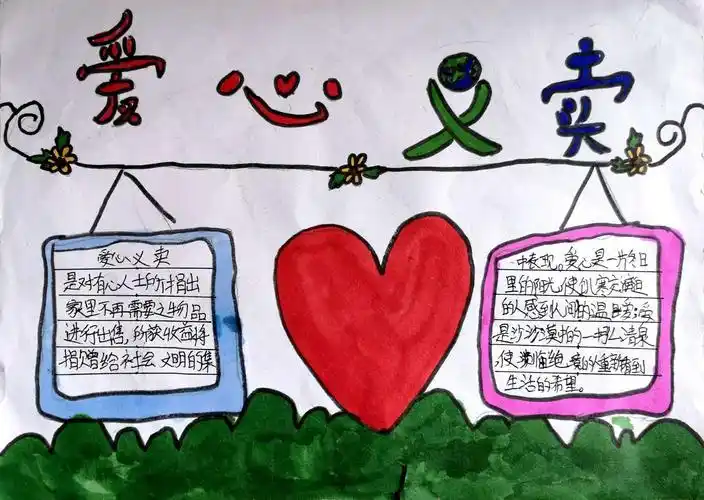 爱心义卖
爱心义卖
是对有心人士所捐出
家里不再需要之物品
进行出售，所获收益将
捐赠给社会文明的集
中表现。爱心是一片冬日
里的阳光，使饥寒交迫
的人感到人间的温暖；爱
是沙沙漠的一泓清泉
使濒临绝境的人重新看到
生活的希望。